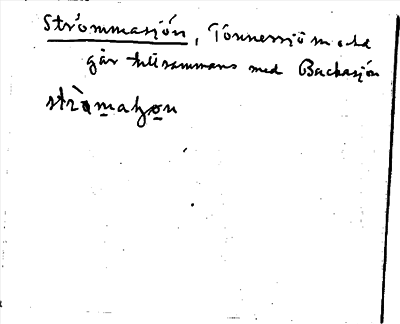 Strömmasjön, Tönnersjö m. fl.
går tillsammans med Backasjön
stròmahon